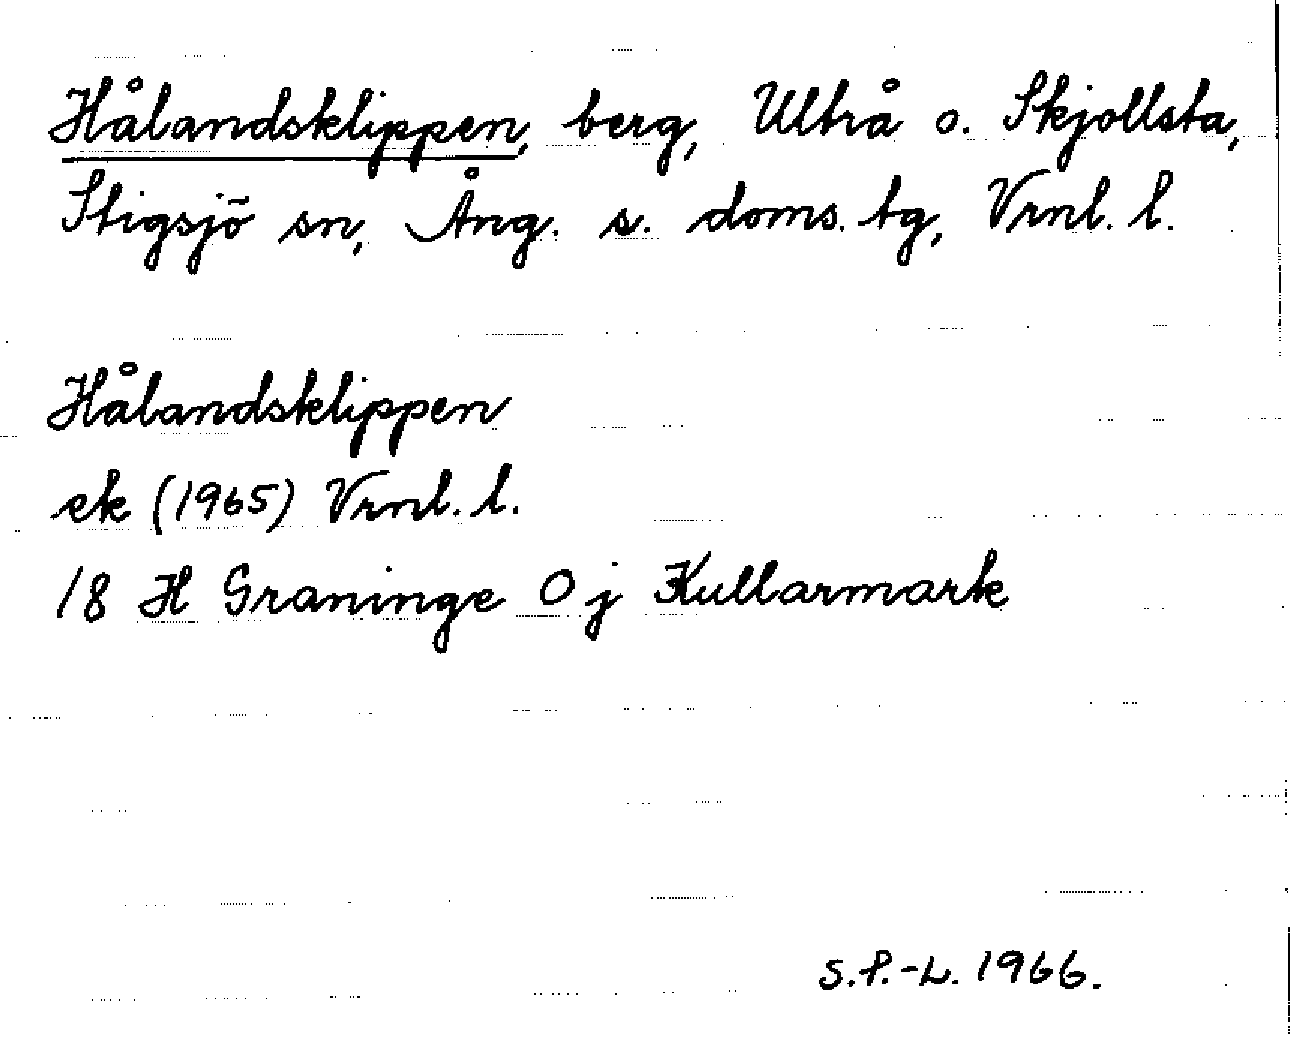 Hålandsklippen, berg, Ultrå o. Skjollsta,
Stigsjö sn, Ång. s. doms. tg, Vrnl. l.
Hålandsklippen
ek (1965) Vrnl. l.
18 H Graninge O j Kullarmark
S.P.-L. 1966.